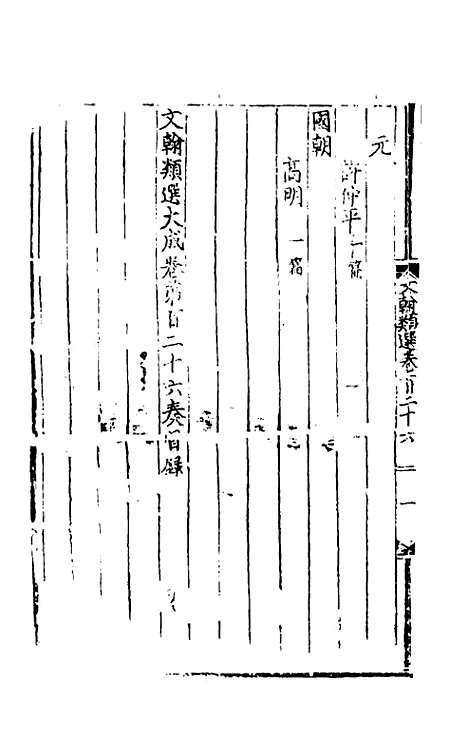 元
許仲平一篇
國朝
高明 一篇
文翰類選大成卷第一百二十六奏目錄
文翰類選卷一百二十六 二 一